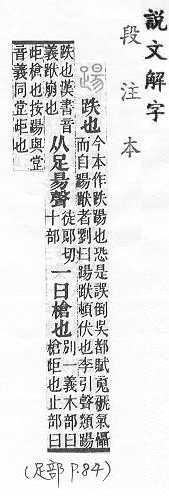 說文解字
段注本
踼
跌也
今本作跌踼也恐是誤倒吳都賦魂褫氣懾
而自踼䟮者劉曰踼䟮頓伏也李引聲類踼
跌也漢書音
義䟮也
从足昜聲
徒郎切
十部
一曰槍也
別一義木部曰
槍歫也止部曰
歫槍也按踼與堂
音義同堂歫也
(足部 P.84)